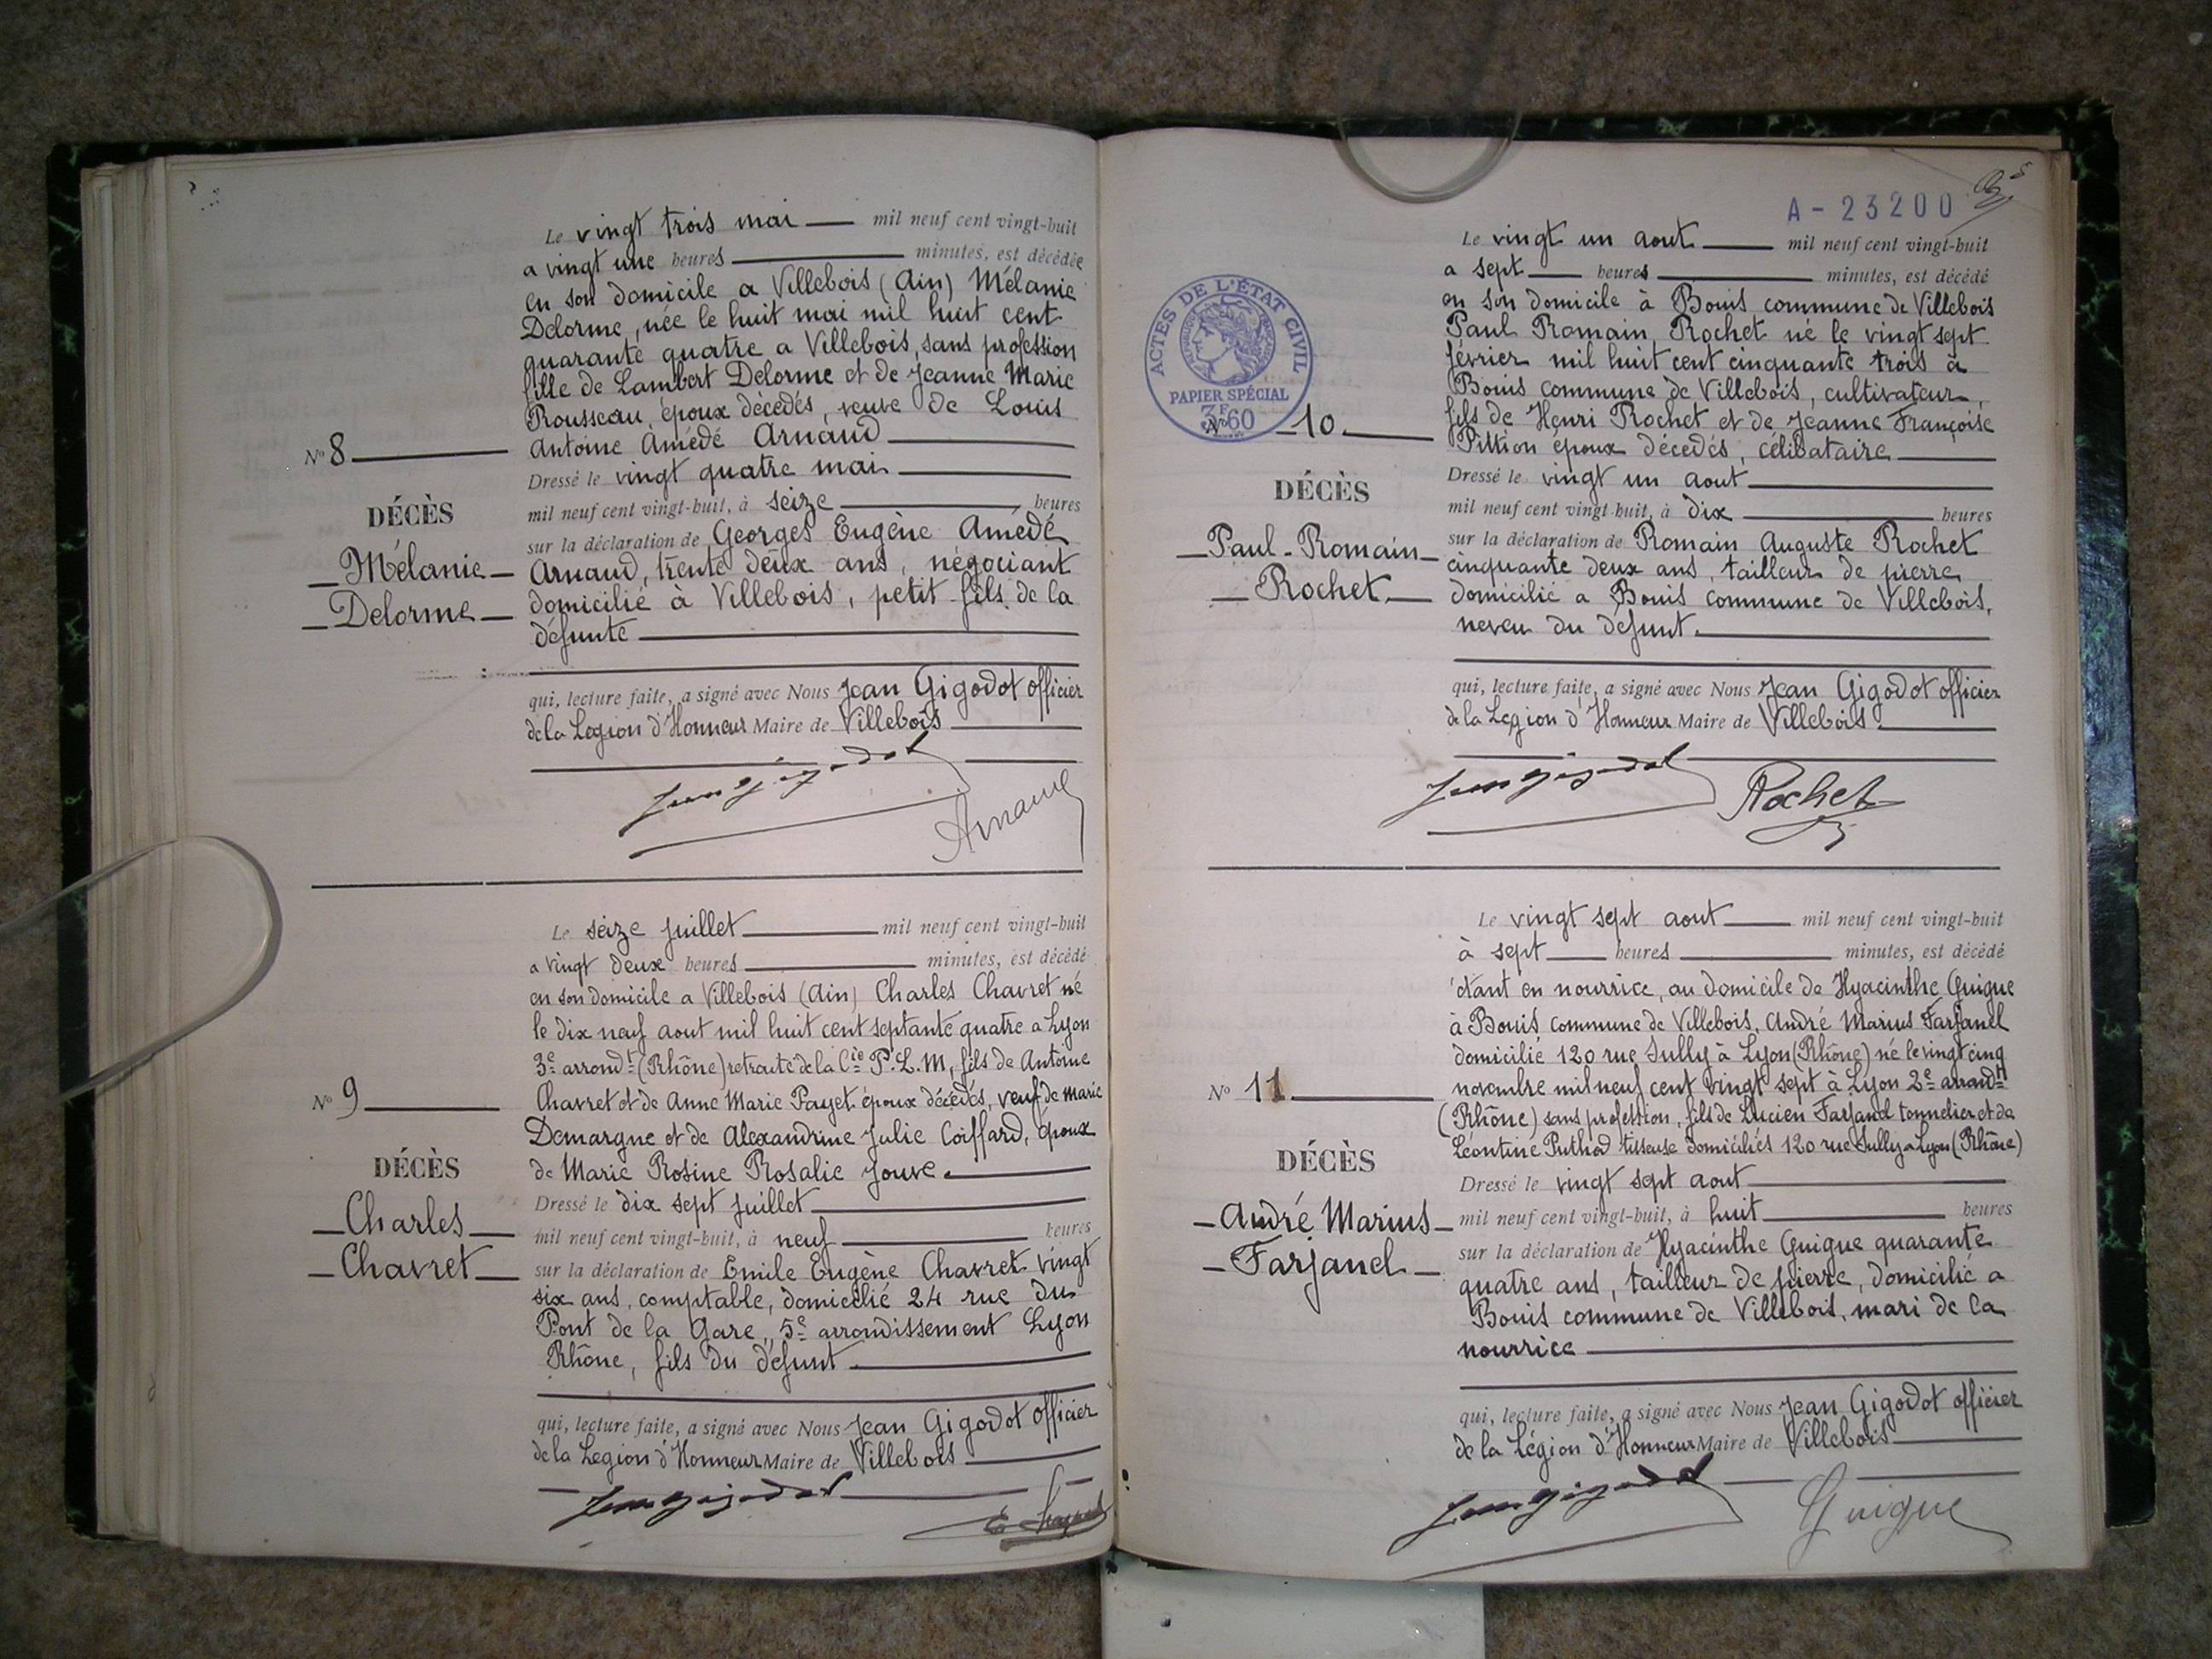 Le vingt trois mai mil neuf cent vingt-huit
a vingt une heures minutes, est décédée
en son domicile a Villebois (Ain) Mélanie
Delorme, née le huit mai mil huit cent
quarante quatre a Villebois, sans profession
fille de Lambert Delorme et de Jeanne Marie
Rousseau, époux décédés, veuve de Louis
Antoine Amédé Arnaud
N° 8
Dressé le vingt quatre mai
DÉCÈS
mil neuf cent vingt-huit, à seize heures
sur la déclaration de Georges Eugène Amédé
Mélanie
Arnaud, trente deux ans, négociant
Delorme
domicilié à Villebois, petit-fils de la
défunte
qui, lecture faite, a signé avec Nous Jean Gigodot officier
de la Legion d'Honneur Maire de Villebois
Jean Gigodot
Arnaud
Le seize juillet mil neuf cent vingt-huit
a vingt deux heures minutes, est décédé
en son domicile a Villebois (Ain) Charles Chavret né
le dix neuf aout mil huit cent septante quatre a Lyon
3e arrondt (Rhône) retraité de la Cie P.L.M, fils de Antoine
N° 9
Chavret et de Anne Marie Payet époux décédés, veuf de Marie
Demargne et de Alexandrine Julie Coiffard, époux
DÉCÈS
de Marie Rosine Rosalie Jouve.
Dressé le dix sept juillet
Charles
mil neuf cent vingt-huit, à neuf heures
Chavret
sur la déclaration de Emile Eugène Chavret vingt
six ans, comptable, domicilié 24 rue du
Pont de la Gare, 5e arrondissement Lyon
Rhône, fils du défunt
qui, lecture faite, a signé avec Nous Jean Gigodot officier
de la Legion d'Honneur Maire de Villebois
Jean Gigodot
A-23200
Le vingt un aout mil neuf cent vingt-huit
a sept heures minutes, est décédé
en son domicile à Bouis commune de Villebois
Paul Romain Rochet né le vingt sept
février mil huit cent cinquante trois à
Bouis commune de Villebois, cultivateur,
fils de Henri Rochet et de Jeanne Françoise
Pittion époux décédés, célibataire
ACTES DE L'ÉTAT CIVIL
PAPIER SPÉCIAL
3F60
N° 10
Dressé le vingt un aout
DÉCÈS
mil neuf cent vingt-huit, à dix heures
Paul-Romain
sur la déclaration de Romain Auguste Rochet
Rochet
cinquante deux ans, tailleur de pierre
domicilié a Bouis commune de Villebois,
neveu du defunt.
qui, lecture faite, a signé avec Nous Jean Gigodot officier
de la Legion d'Honneur Maire de Villebois.
Jean Gigodot
Rochet
Le vingt sept aout mil neuf cent vingt-huit
à sept heures minutes, est décédé
étant en nourrice, au domicile de Hyacinthe Guigue
à Bouis commune de Villebois, André Marius Farjanel
domicilié 120 rue Sully à Lyon (Rhône) né le vingt cinq
N° 11
novembre mil neuf cent vingt sept à Lyon 2e arrondt
(Rhône) sans profession, fils de Lucien Farjanel tonnelier et de
Léontine Puthod tisseuse domiciliés 120 rue Sully a Lyon (Rhône)
DÉCÈS
Dressé le vingt sept aout
André Marius
mil neuf cent vingt-huit, à huit heures
Farjanel
sur la déclaration de Hyacinthe Guigue quarante
quatre ans, tailleur de pierre, domicilié a
Bouis commune de Villebois, mari de la
nourrice
qui, lecture faite, a signé avec Nous Jean Gigodot officier
de la Légion d'Honneur Maire de Villebois
Jean Gigodot
Guigue